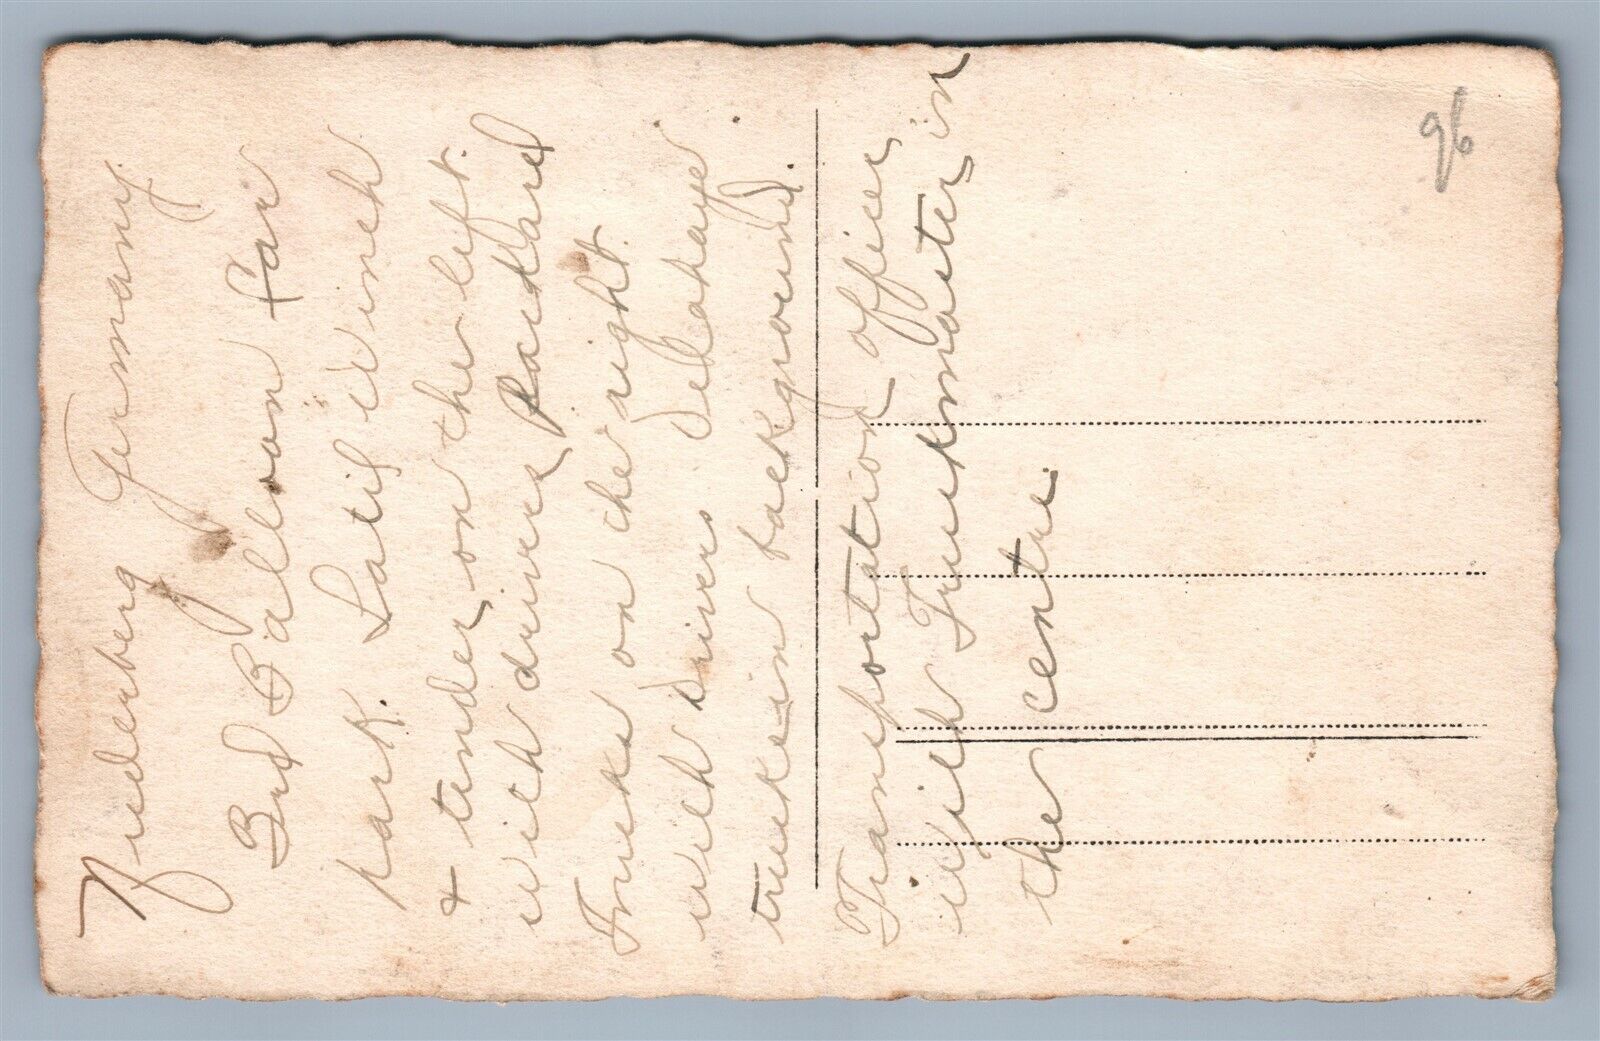 Niederberg Germany.
3rd Balloon far
park. Latif Winch
+ tender on the left.
with drivers Packard
Trucks on the right.
with Drivers Delahaye
trucks in background.
Transportation officer
with Truckmaster in
the centre.
96